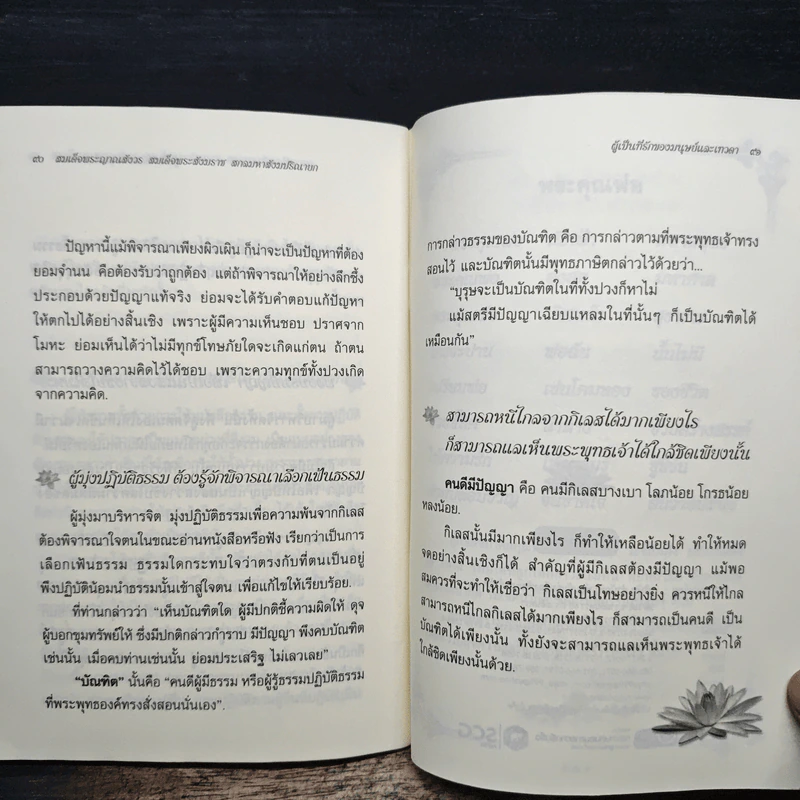 ๙๐ สมเด็จพระญาณสังวร สมเด็จพระสังฆราช สกลมหาสังฆปริณายก
ปัญหานี้แม้พิจารณาเพียงผิวเผิน ก็น่าจะเป็นปัญหาที่ต้อง
ยอมจำนน คือต้องรับว่าถูกต้อง แต่ถ้าพิจารณาให้อย่างลึกซึ้ง
ประกอบด้วยปัญญาแท้จริง ย่อมจะได้รับคำตอบแก้ปัญหา
ให้ตกไปได้อย่างสิ้นเชิง เพราะผู้มีความเห็นชอบ ปราศจาก
โมหะ ย่อมเห็นได้ว่าไม่มีทุกข์โทษภัยใดจะเกิดแก่ตน ถ้าตน
สามารถวางความคิดไว้ได้ชอบ เพราะความทุกข์ทั้งปวงเกิด
จากความคิด.
ผู้มุ่งปฏิบัติธรรม ต้องรู้จักพิจารณาเลือกเฟ้นธรรม
ผู้มุ่งมาบริหารจิต มุ่งปฏิบัติธรรมเพื่อความพ้นจากกิเลส
ต้องพิจารณาใจตนในขณะอ่านหนังสือหรือฟัง เรียกว่าเป็นการ
เลือกเฟ้นธรรม ธรรมใดกระทบใจว่าตรงกับที่ตนเป็นอยู่
พึงปฏิบัติน้อมนำธรรมนั้นเข้าสู่ใจตน เพื่อแก้ไขให้เรียบร้อย.
ที่ท่านกล่าวว่า “เห็นบัณฑิตใด ผู้มีปกติชี้ความผิดให้ ดุจ
ผู้บอกขุมทรัพย์ให้ ซึ่งมีปกติกล่าวกำราบ มีปัญญา พึงคบบัณฑิต
เช่นนั้น เมื่อคบท่านเช่นนั้น ย่อมประเสริฐ ไม่เลวเลย”
“บัณฑิต” นั้นคือ “คนดีผู้มีธรรม หรือผู้รู้ธรรมปฏิบัติธรรม
ที่พระพุทธองค์ทรงสั่งสอนนั่นเอง”.
ผู้เป็นที่รักของมนุษย์และเทวดา ๙๑
การกล่าวธรรมของบัณฑิต คือ การกล่าวตามที่พระพุทธเจ้าทรง
สอนไว้ และบัณฑิตนั้นมีพุทธภาษิตกล่าวไว้ด้วยว่า...
“บุรุษจะเป็นบัณฑิตในที่ทั้งปวงก็หาไม่
แม้สตรีมีปัญญาเฉียบแหลมในที่นั้นๆ ก็เป็นบัณฑิตได้
เหมือนกัน”
สามารถหนีไกลจากกิเลสได้มากเพียงไร
ก็สามารถแลเห็นพระพุทธเจ้าได้ใกล้ชิดเพียงนั้น
คนดีมีปัญญา คือ คนมีกิเลสบางเบา โลภน้อย โกรธน้อย
หลงน้อย.
กิเลสนั้นมีมากเพียงไร ก็ทำให้เหลือน้อยได้ ทำให้หมด
จดอย่างสิ้นเชิงก็ได้ สำคัญที่ผู้มีกิเลสต้องมีปัญญา แม้พอ
สมควรที่จะทำให้เชื่อว่า กิเลสเป็นโทษอย่างยิ่ง ควรหนีให้ไกล
สามารถหนีไกลกิเลสได้มากเพียงไร ก็สามารถเป็นคนดี เป็น
บัณฑิตได้เพียงนั้น ทั้งยังจะสามารถแลเห็นพระพุทธเจ้าได้
ใกล้ชิดเพียงนั้นด้วย.